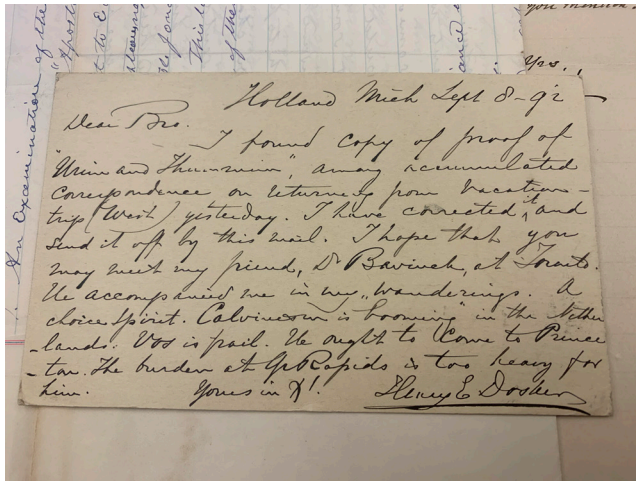 you mention
Yrs.,
An Examination of the
of the
Holland Mich Sept 8-92
Dear Bro.
I found copy of proof of
"Urim and Thummim", among accumulated
correspondence on returning from vacation-
trip (West) yesterday. I have corrected it and
send it off by this mail. I hope that you
may meet my friend, Dr Bavinck, at Toronto.
He accompanied me in my "wanderings. A
choice spirit. Calvinism is booming" in the Nether
-lands. Vos is frail. He ought to come to Prince
-ton. The burden at Gr Rapids is too heavy for
him. Yours in X!. Henry E Dosker